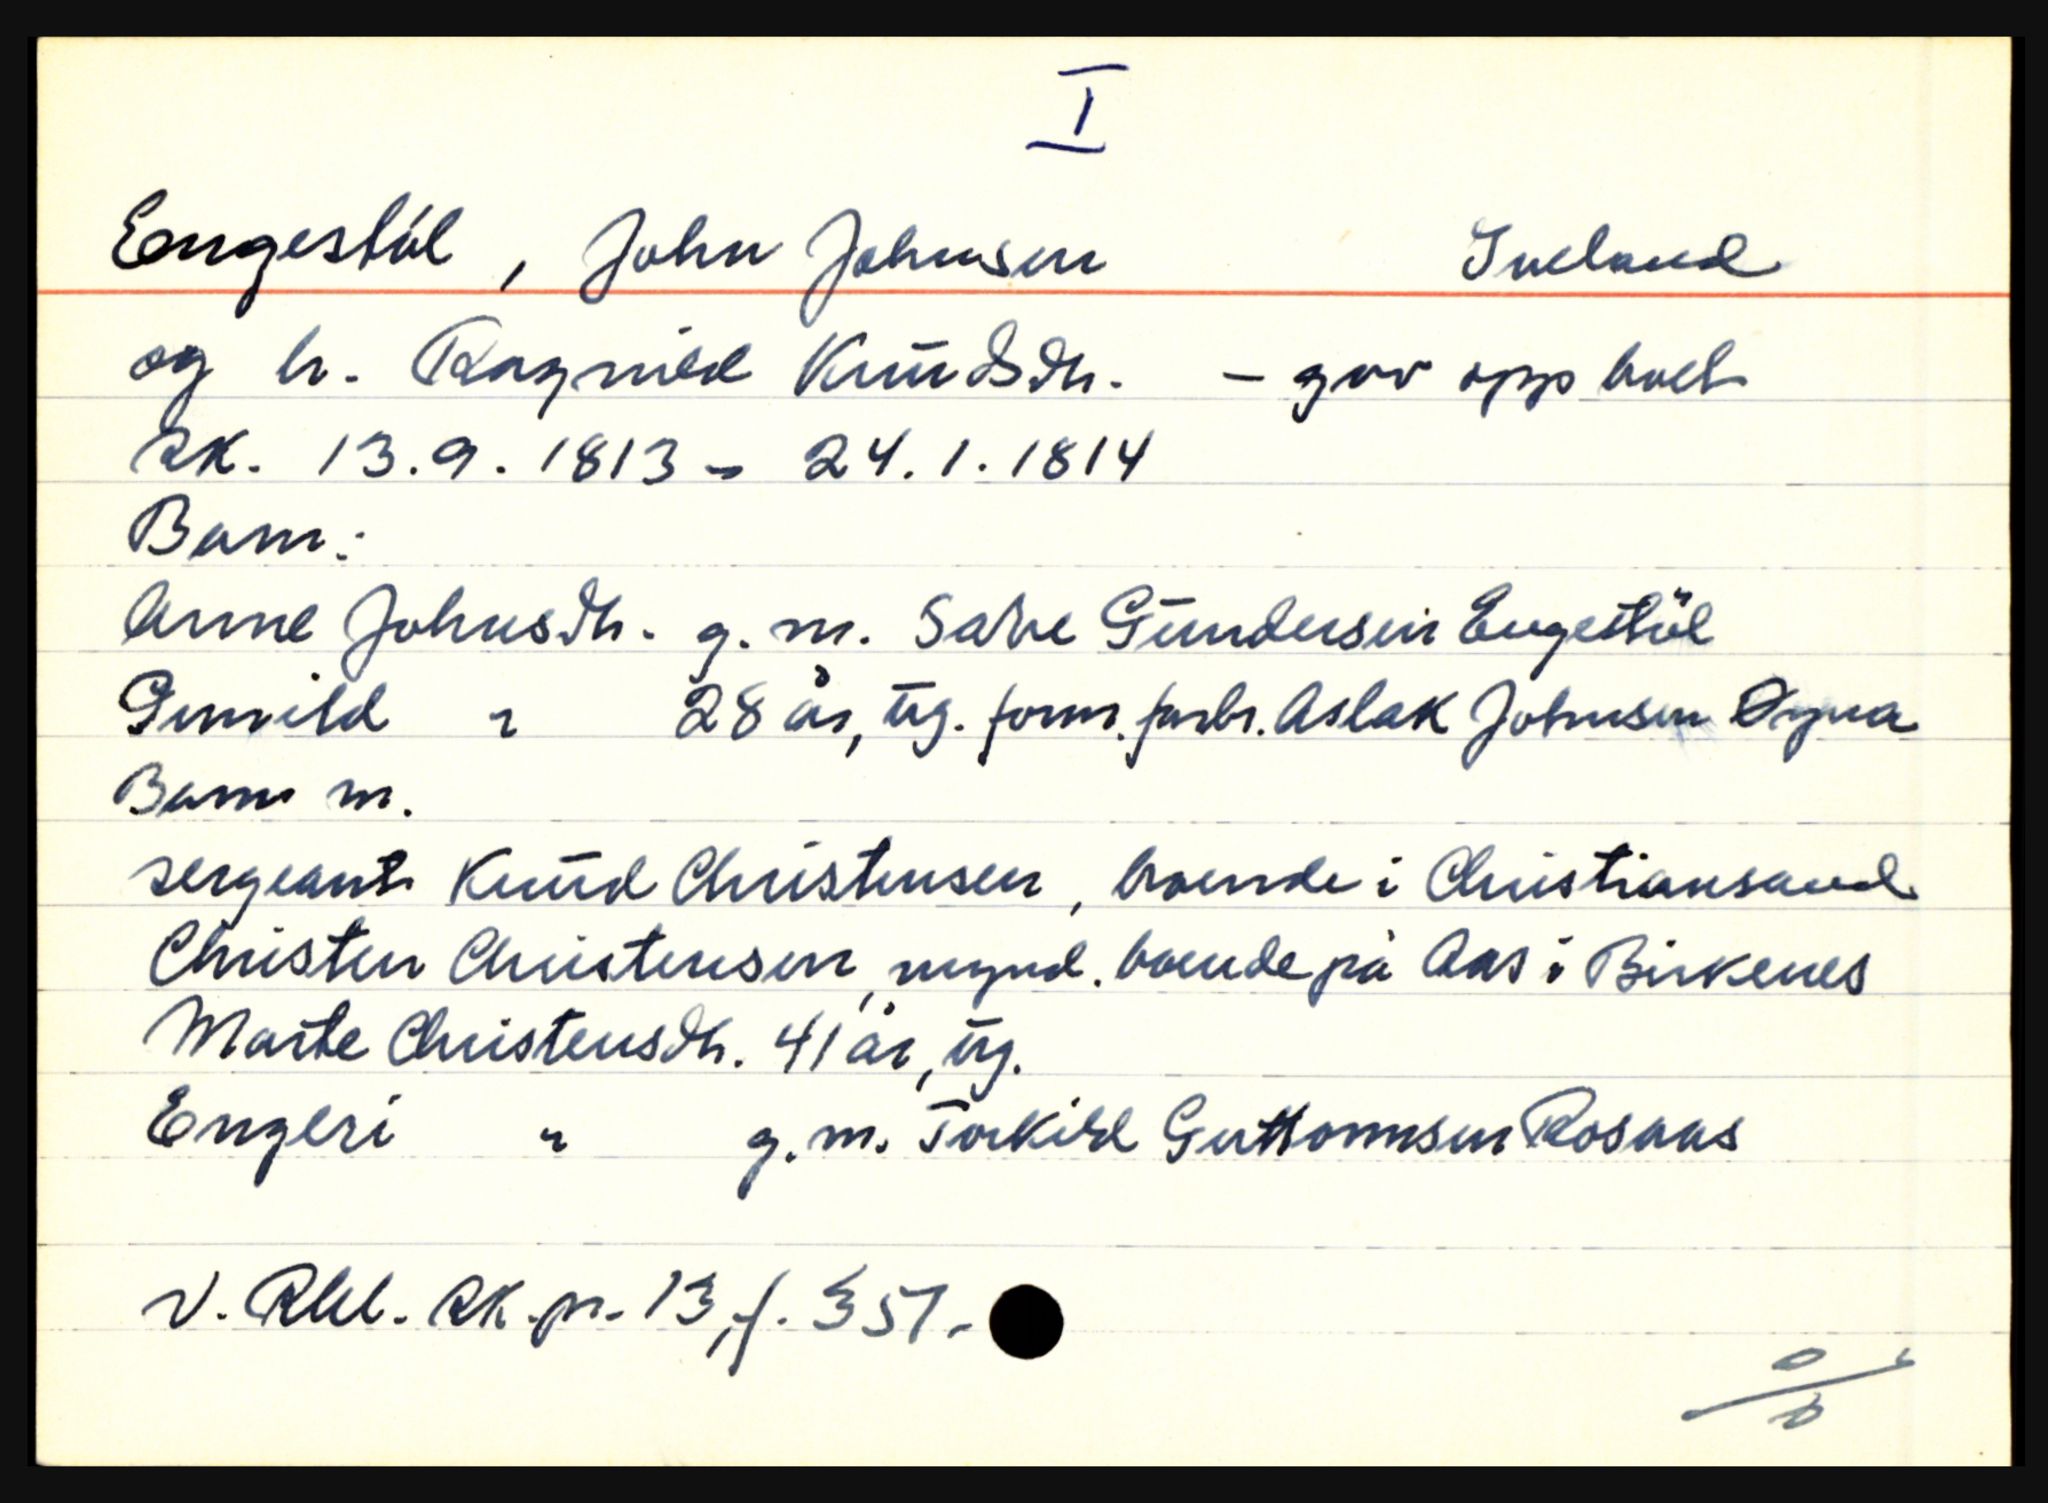 I
Engestøl, John Johnsen Iveland
og h. Ragnild Knudsdtr. - gav opp boet
RK. 13.9.1813 - 24.1.1814
Barn:
Anne Johnsdtr. g. m. Salve Gundersen Engestøl
Gunild " 28 år, ug. form. farbr. Aslak Johnsen Øyna
Barn m.
sergeant Knud Christensen, boende i Christiansand
Christen Christensen, mynd. boende på Aas i Birkenes
Marte Christensdtr. 41 år, ug.
Engeri " g. m. Torkild Guttormsen Rosaas
V. Rbl. RK. pr. 13, f. 351.